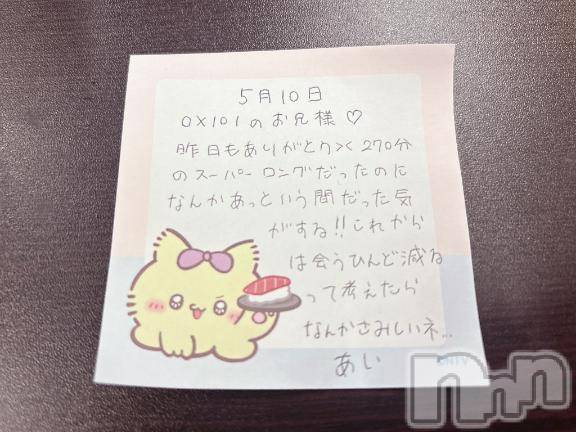 5月10日
0×101のお兄様♡
昨日もありがとう>< 270分
のスーパーロングだったのに
なんかあっという間だった気
がする!!これから
は会うひんど減る
って考えたら
なんかさみしいネ...
あい
nnn